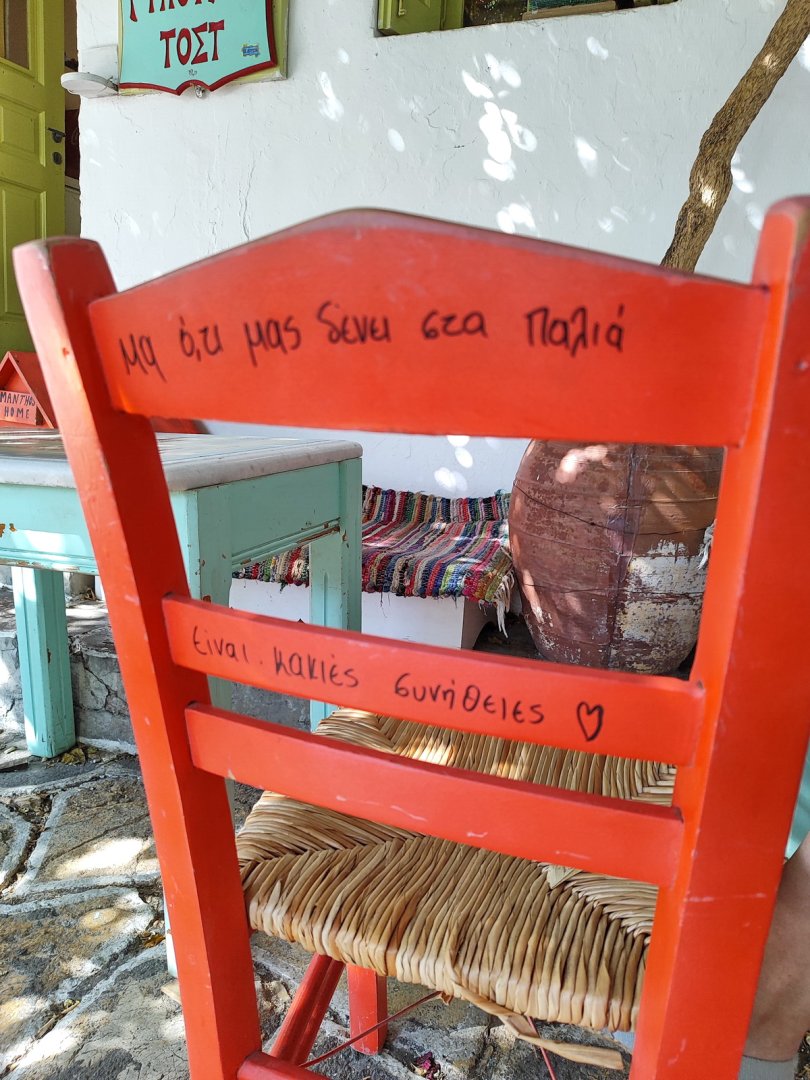 ΤΟΣΤ
MANTHOS
HOME
Μα ό,τι μας δένει στα παλιά
είναι κακιές συνήθειες ♡